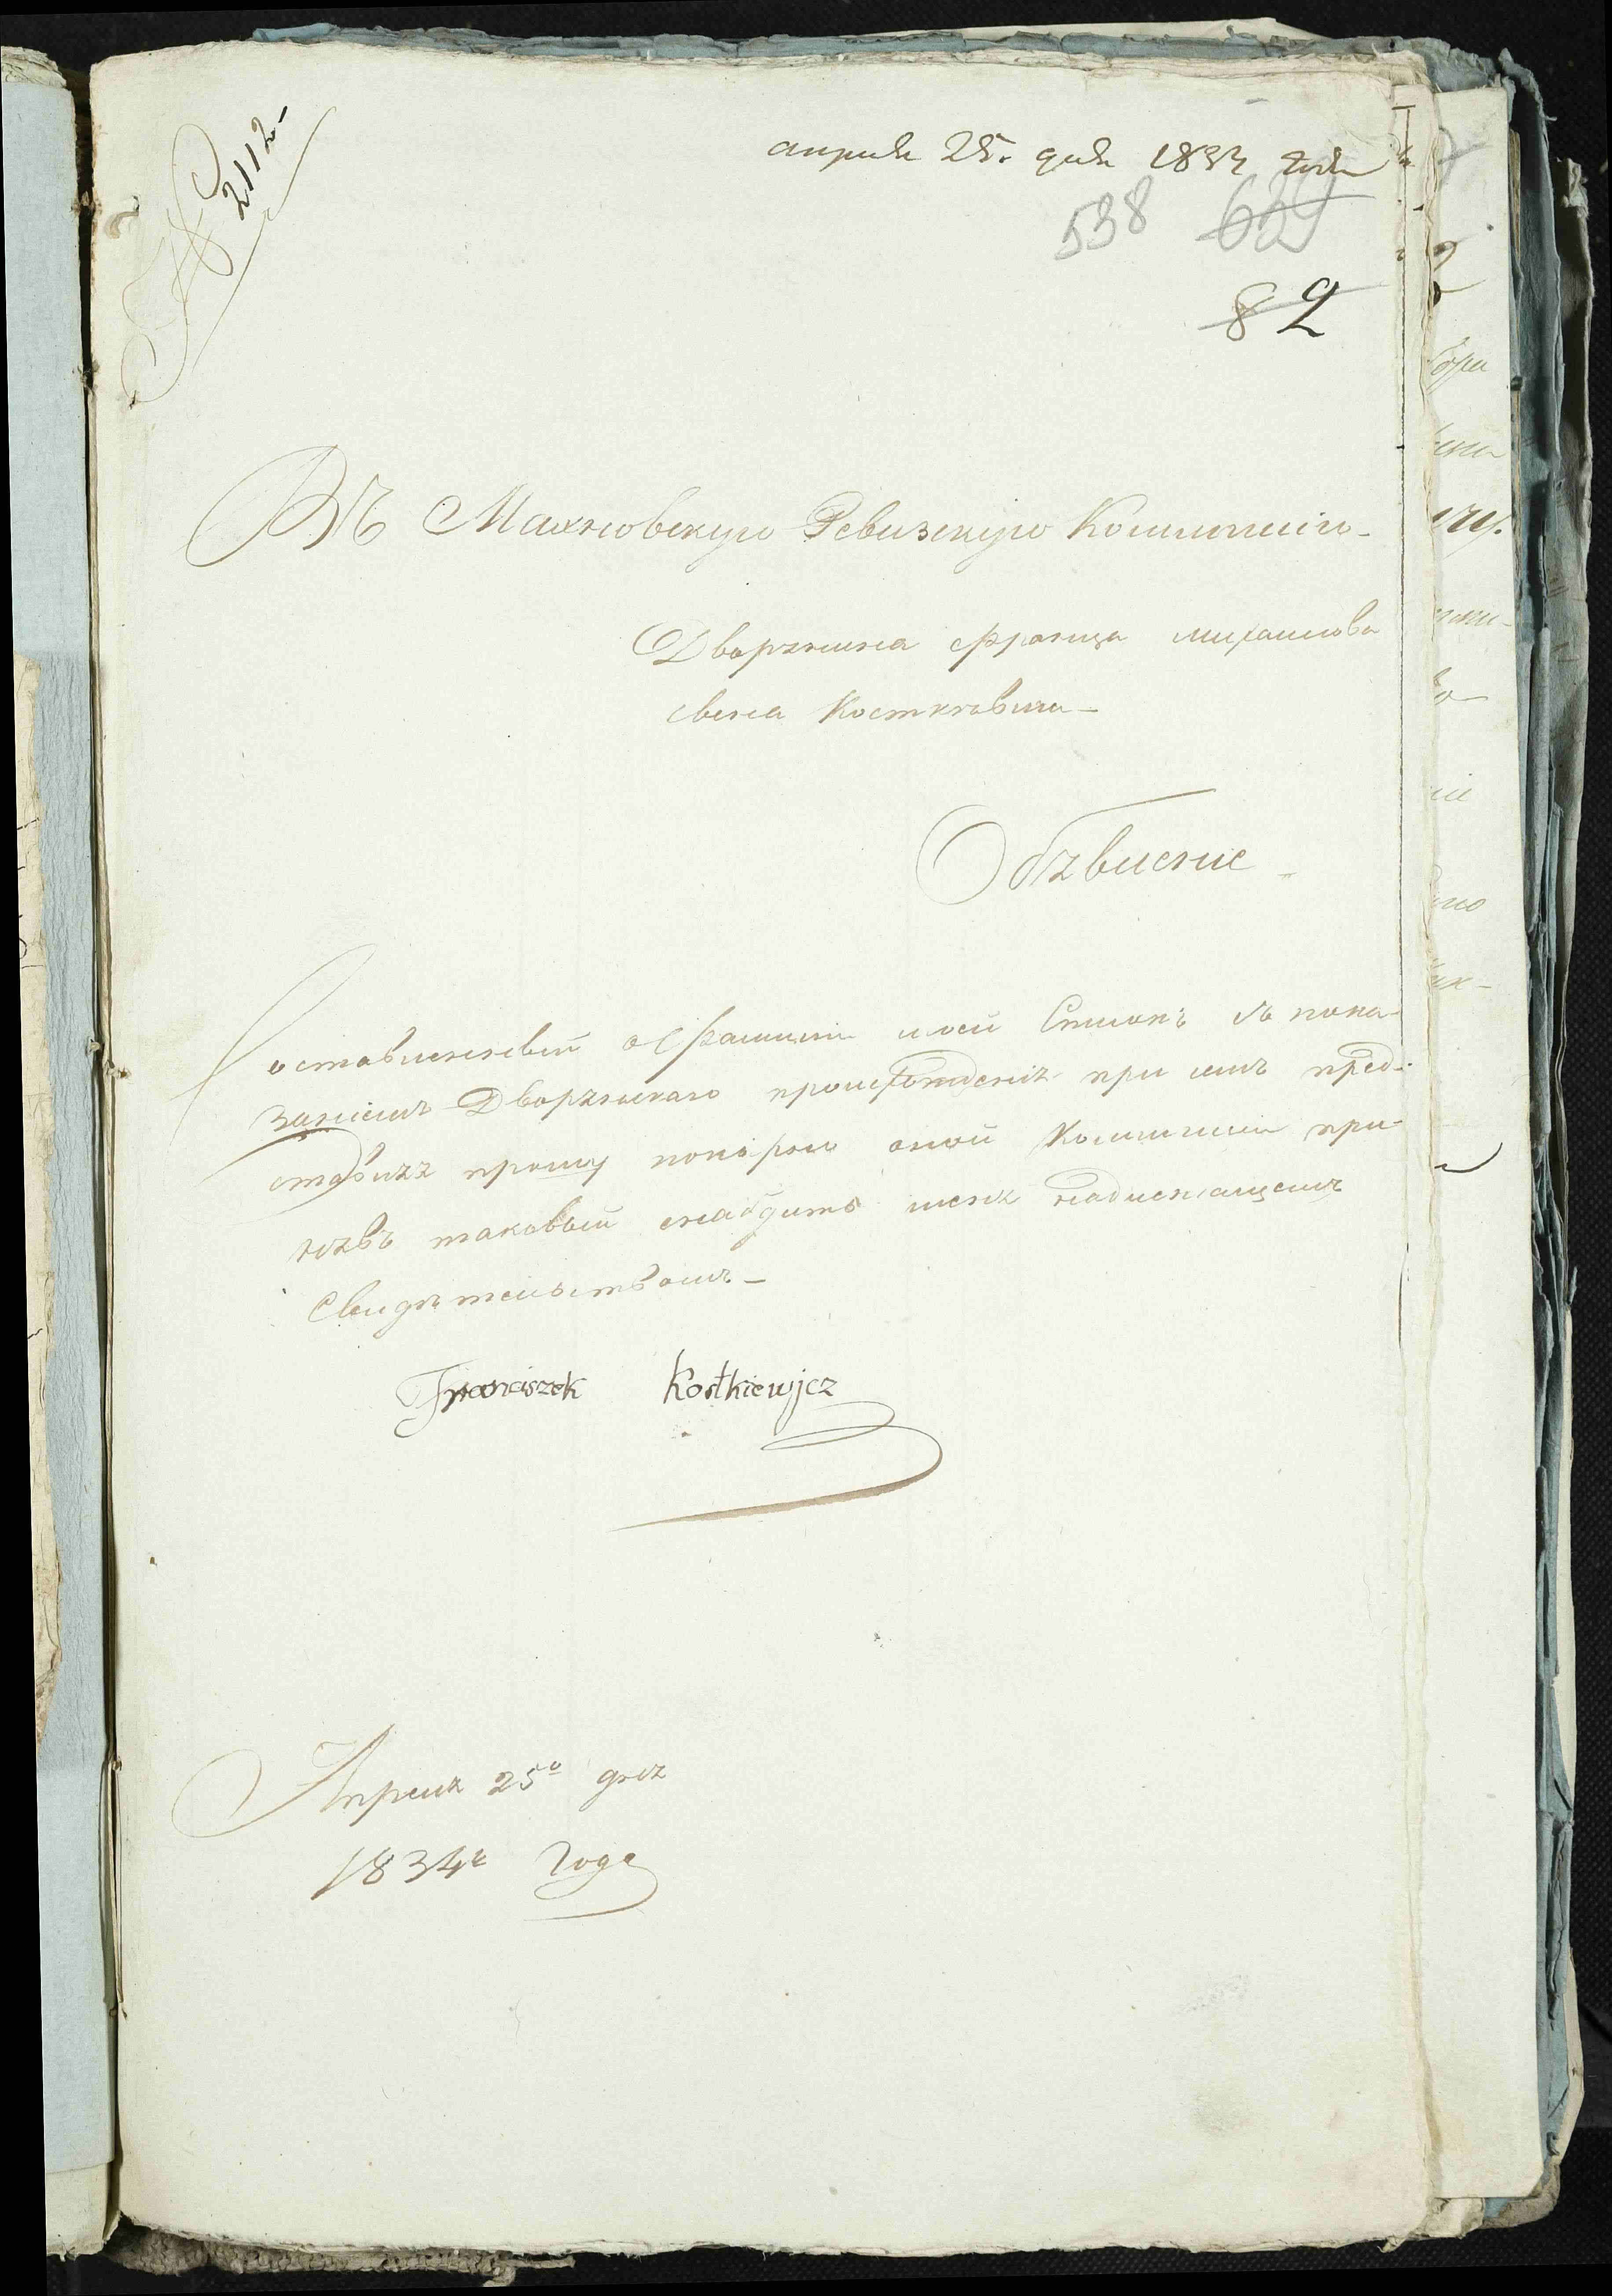 № 2112
апреля 25. дня 1834 года
538 639
82
Въ Махновскую Ревизскую Коммисию
Дворянина Франца Михайлова
сына Косткевича
Объявление
Составленный о Фамилии моей Списокъ съ пока-
занiемъ Дворянскаго происхожденiя при семъ пред-
ставляя прошу покорно оной Коммисiи при-
нявъ таковый снабдить меня надлежащемъ
Свидетельствомъ
Franciszek Kostkiewicz
Апреля 25о дня
1834г Года